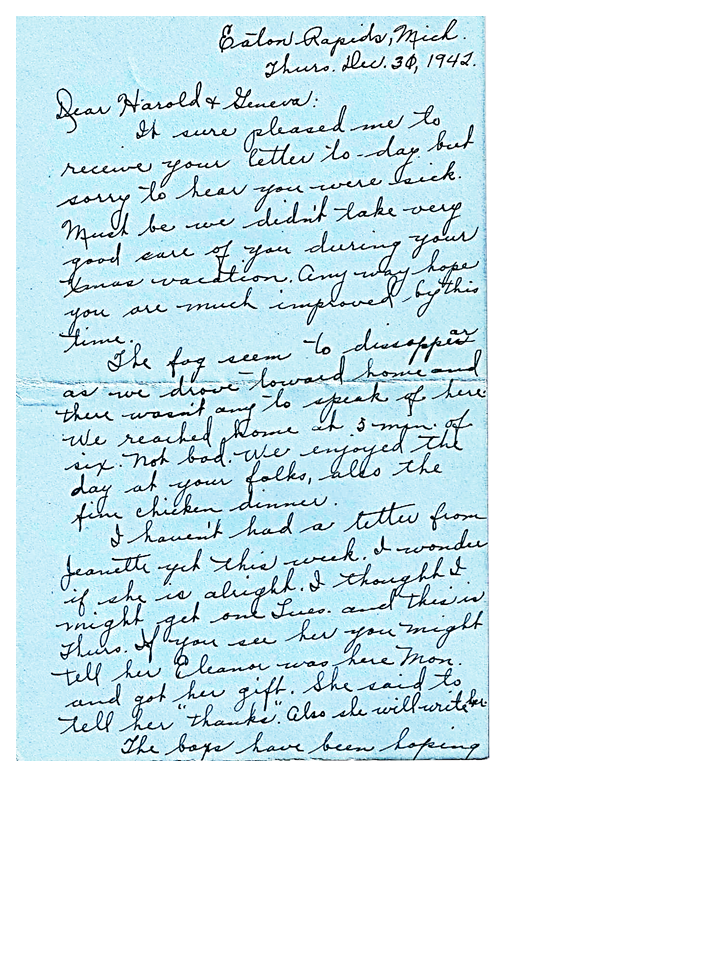 Eaton Rapids, Mich.
Thurs. Dec. 30, 1942.
Dear Harold & Geneva:
It sure pleased me to
receive your letter to-day but
sorry to hear you were sick.
Must be we didn't take very
good care of you during your
Xmas vacation. Any way hope
you are much improved by this
time.
The fog seem to dissappear
as we drove toward home and
there wasn't any to speak of here.
We reached home at 5 min. of
six. Not bad. We enjoyed the
day at your folks, also the
fine chicken dinner.
I haven't had a letter from
Jeanette yet this week. I wonder
if she is alright. I thought I
might get one Tues. and this is
Thurs. If you see her you might
tell her Eleanor was here Mon.
and got her gift. She said to
tell her "thanks". Also she will write her.
The boys have been hoping